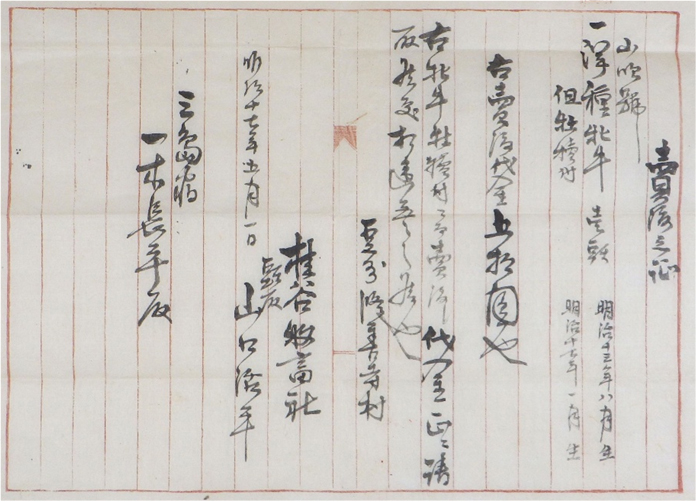 賣渡之証
山吹號
一洋種牝牛 壱頭 明治十三年八月生
但牡犢付 明治十七年一月生
右賣渡代金五拾圓也
右牝牛牡犢付ニ而賣渡シ代金正ニ請
取候処相違無之候也
豆州修善寺村
桂谷牧畜社
山口治平
明治十七年五月一日
三島宿
一木長平殿